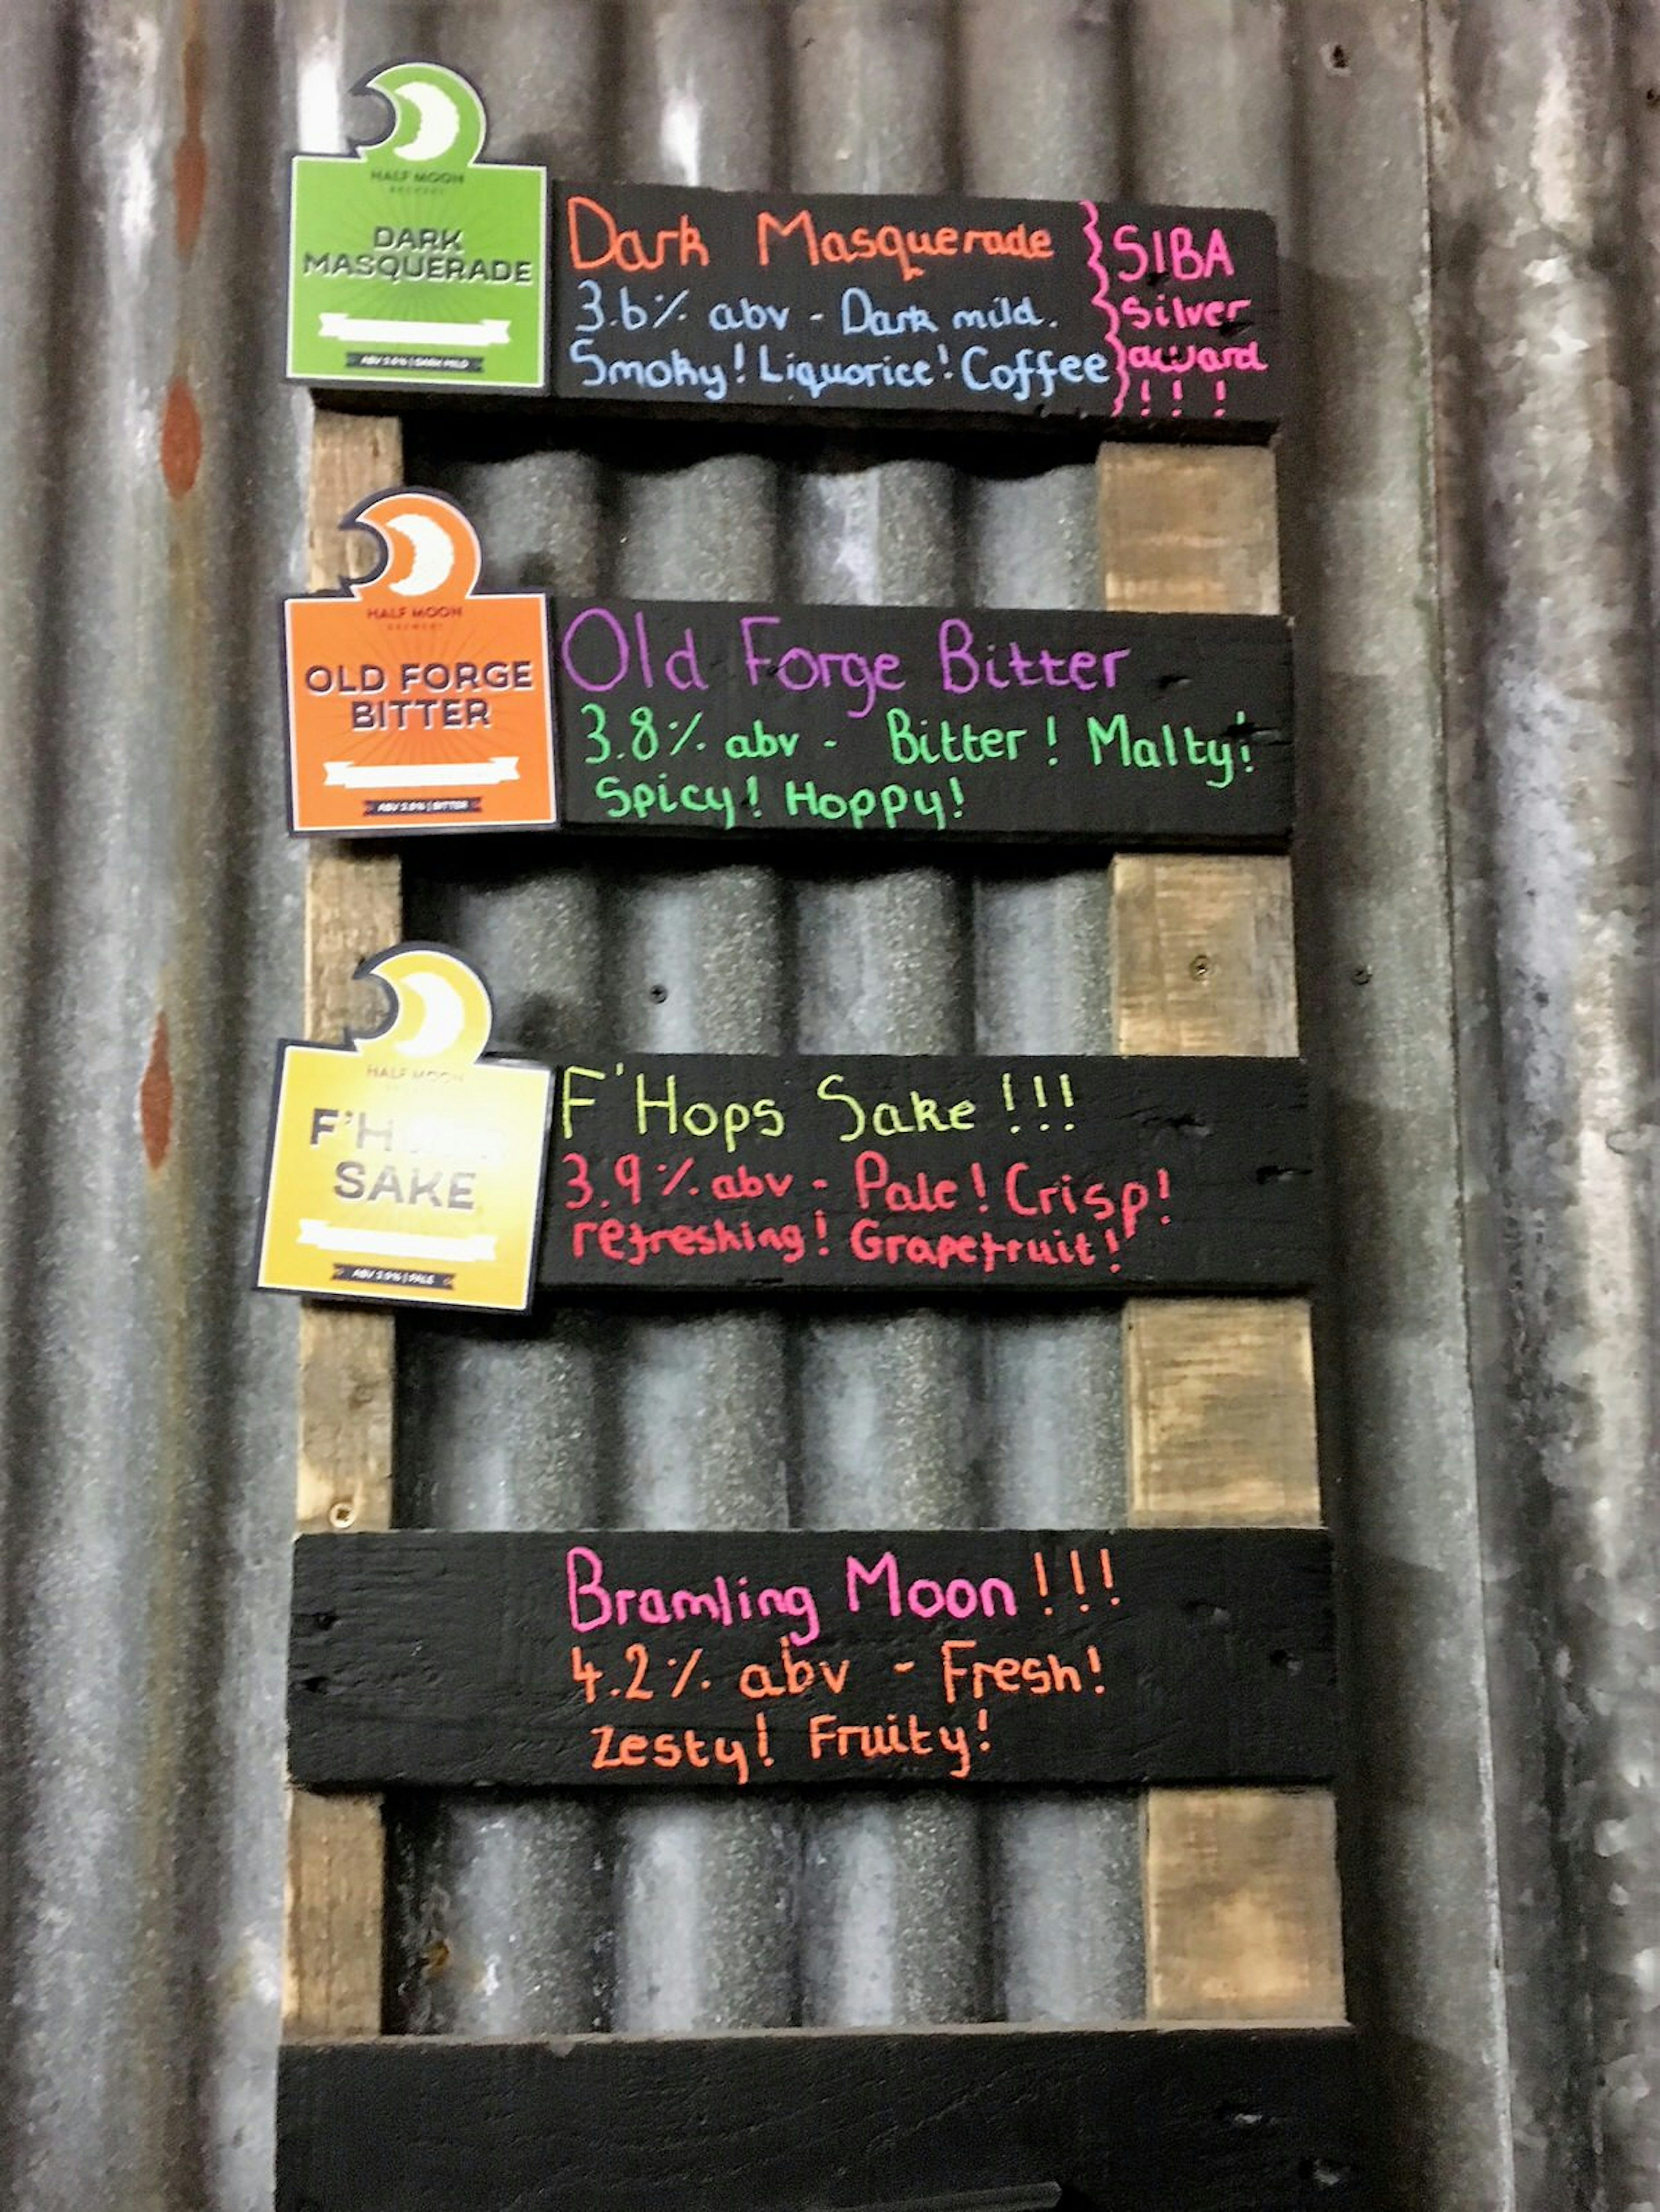 HALF MOON
BREWERY
DARK
MASQUERADE
ABV 3.6% | DARK MILD
Dark Masquerade
3.6% abv - Dark mild.
Smoky! Liquorice! Coffee
SIBA
Silver
award
! ! !
HALF MOON
BREWERY
OLD FORGE
BITTER
ABV 3.8% | BITTER
Old Forge Bitter
3.8% abv - Bitter! Malty!
Spicy! Hoppy!
HALF MOON
SAKE
ABV 3.9% | PALE
F'Hops Sake!!!
3.9% abv - Pale! Crisp!
refreshing! Grapefruit!
Bramling Moon!!!
4.2% abv - Fresh!
Zesty! Fruity!